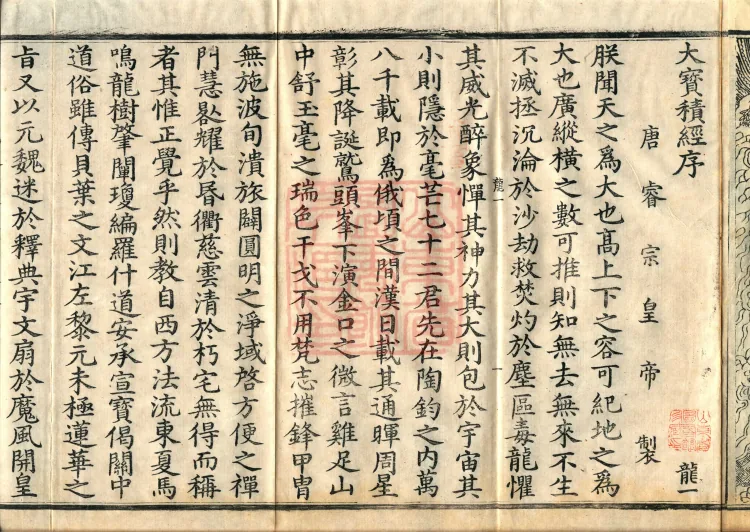 大寶積經序 龍一
唐睿宗皇帝製
朕聞天之爲大也髙上下之容可紀地之爲
大也廣縱橫之數可推則知無去無來不生
不滅拯沉淪於沙劫救焚灼於塵區毒龍懼
龍一 一
其威光醉象憚其神力其大則包於宇宙其
小則隱於毫芒七十二君先在陶鈞之內萬
八千載即爲俄頃之間漢日載其通暉周星
彰其降誕鷲頭峯下演金口之微言雞足山
中舒玉毫之瑞色干戈不用梵志摧鋒甲冑
無施波旬潰旅闢圓明之淨域啓方便之禪
門慧晷耀於昬衢慈雲清於朽宅無得而稱
者其惟正覺乎然則教自西方法流東夏馬
鳴龍樹肇闡瓊編羅什道安承宣寶偈關中
道俗雖傳貝葉之文江左黎元未極蓮華之
旨又以元魏迷於釋典宇文扇於魔風開皇